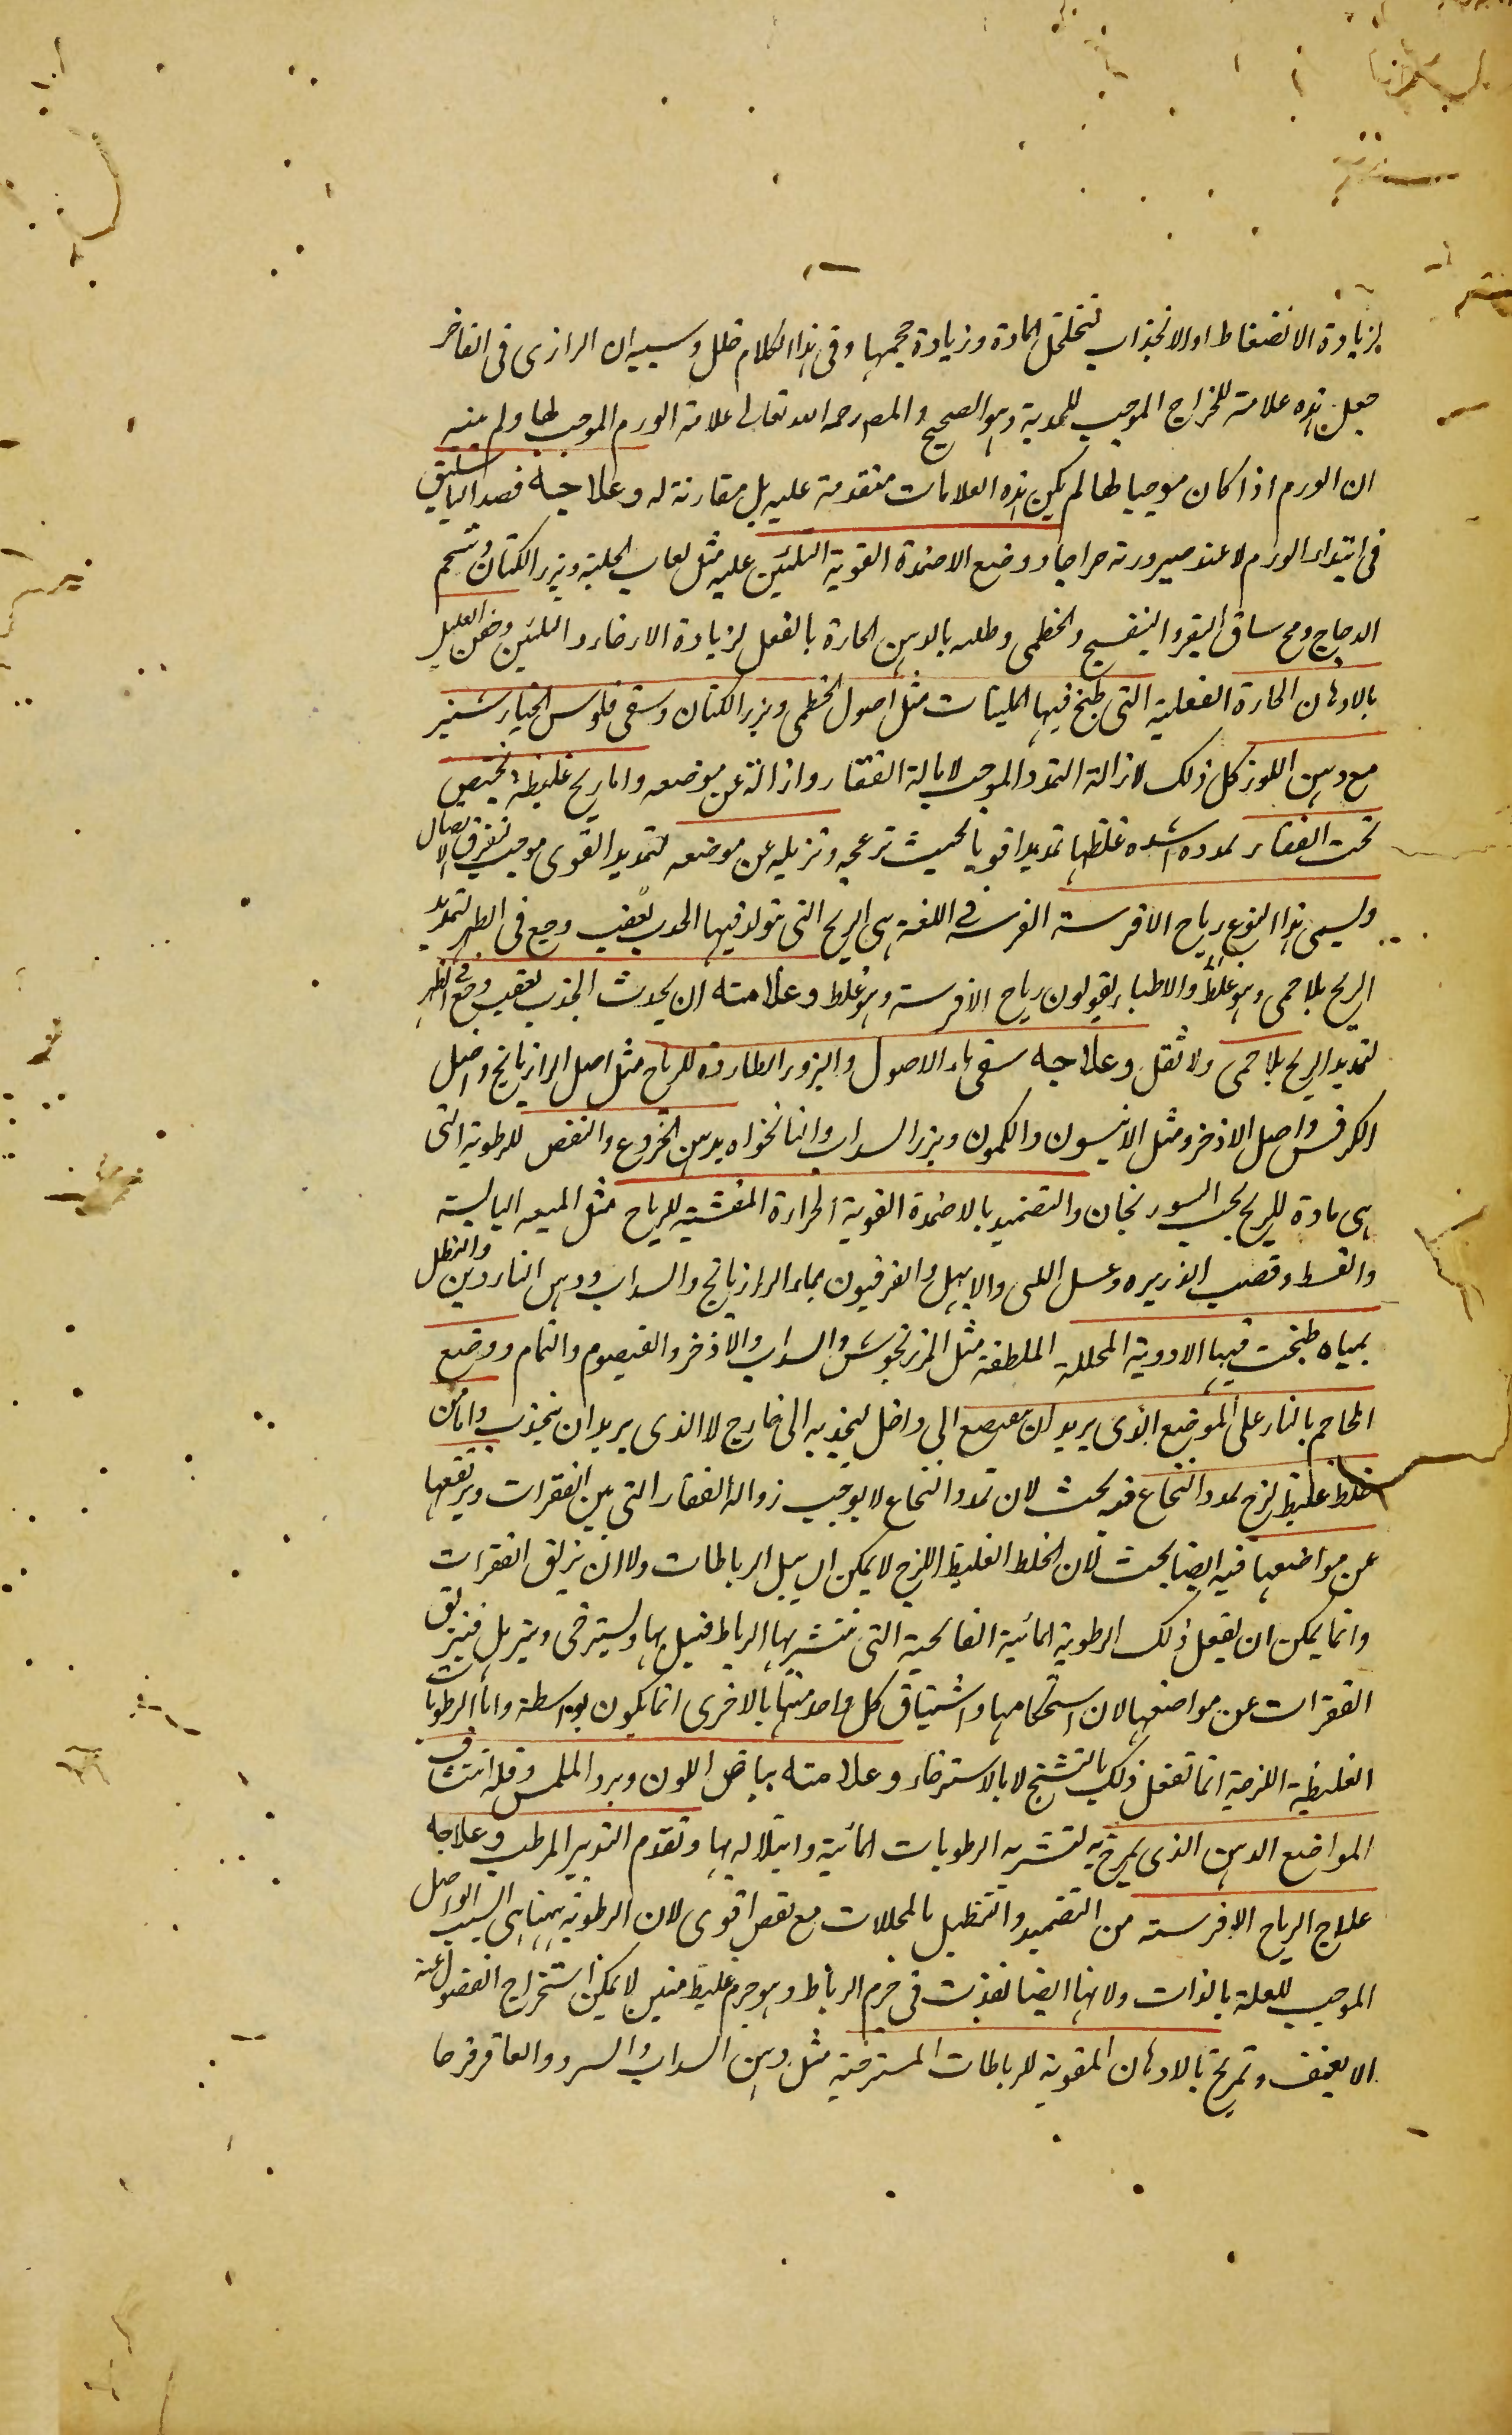 لزيادة الانضغاط او الانجذاب لتخلخل المادة وزيادة حجمها وفى هذا الكلام خلل وسببه ان الرازى فى الفاخر
جعل هذه علامة للخراج الموجب للحدبة وهو الصحيح والمصـ رحمه الله تعالى علامة الورم الموجب لها ولم ينبه
ان الورم اذا كان موجبا لها لم يكن هذه العلامات متقدمة عليه بل مقارنة له وعلاجه فصد الباسليق
فى ابتداء الورم لا عند صيرورته خراجا ووضع الاضمدة القوية التليين عليه مثل لعاب الحلبة وبزر الكتان وشحم
الدجاج ومخ ساق البقر والبنفسج والخطمى وطليه بالدهن الحارة بالفعل لزيادة الارخاء والتليين وحقن العليل
بالادهان الحارة الفعلية التى طبخ فيها الملينات مثل اصول الخطمى وبزر الكتان وسقى فلوس الخيار شنبر
مع دهن اللوز كل ذلك لازالة التمدد الموجب لامالة الفقار وازالة عن موضعه واما ريح غليظة تحتبس
تحت الفقار تمدده لشدة غلظها تمديدا قويا بحيث تزعجه وتزيله عن موضعه لتمديد القوى موجب لتفرق الاتصال
ويسمى هذا النوع رياح الافرسة الفرسة فى اللغة هى الريح التى يتولد فيها الحدب بعقب وجع فى الظهر لتمديد
الريح بلا حمى وهو غلط والاطباء يقولون رياح الافرسة وهو غلط وعلامته ان يحدث الحدب بعقب وجع فى الظهر
لتمديد الريح بلا حمى ولا ثقل وعلاجه سقى ماء الاصول والبزور الطاردة للرياح مثل اصل الرازيانج واصل
الكرفس واصل الاذخر ومثل الانيسون والكمون وبزر السداب والنانخواه بدهن الخروع والنفض للرطوبة التى
هى مادة للريح بحب السورنجان والتضميد بالاضمدة القوية الحرارة المفشية للرياح مثل الميعه اليابسة
والقسط وقصب الذريره وعسل اللبنى والابهل والفرفيون بماء الرازيانج والسداب ودهن الناردين والتنطل
بمياه طبخت فيها الادوية المحللة الملطفة مثل المرزنجوش والسداب والاذخر والقيصوم والنمام ووضع
المحاجم بالنار على الموضع الذى يريد ان يعرصع الى داخل ليجذبه الى خارج لا الذى يريد ان ينجذب واما من
خلط غليظ لزج تمدد النخاع فيه بحث لان تمدد النخاع لا يوجب زوالا الفقار التى بين الفقرات ويزلقها
عن مواضعها فيه ايضا بحث لان الخلط الغليظ اللزج لا يمكن ان يبل الرباطات ولا ان يزلق الفقرات
وانما يمكن ان يفعل ذلك الرطوبة المائية الفالجية التى تتشربها الرباط فيبل بها ويسترخى ويترهل فتزلق
الفقرات عن مواضعها لان استحكامها واشتياق كل واحد منها بالاخرى انما يكون بواسطة واما الرطوبات
الغليظة اللزجة انما تفعل ذلك بالتشنج لا بالاسترخاء وعلامته بياض اللون وبرد الملمس وقلة انتشاف
المواضع الدهن الذى يمرخ به لتشربه الرطوبات المائية وابتلاله بها وتقدم التدبير المرطب وعلاجه
علاج الرياح الافرسة من التضميد والتنطيل بالمحللات مع نفض اقوى لان الرطوبة ههنا هى السبب الواصل
الموجب للعلة بالذات ولانها ايضا نفذت فى جرم الرباط وهو جرم غليظ متين لا يمكن استخراج الفضول عنه
الا بعنف وتمريخ بالادهان المقوية للرباطات المسترخية مثل دهن السداب والسرو والعاقرقرحا